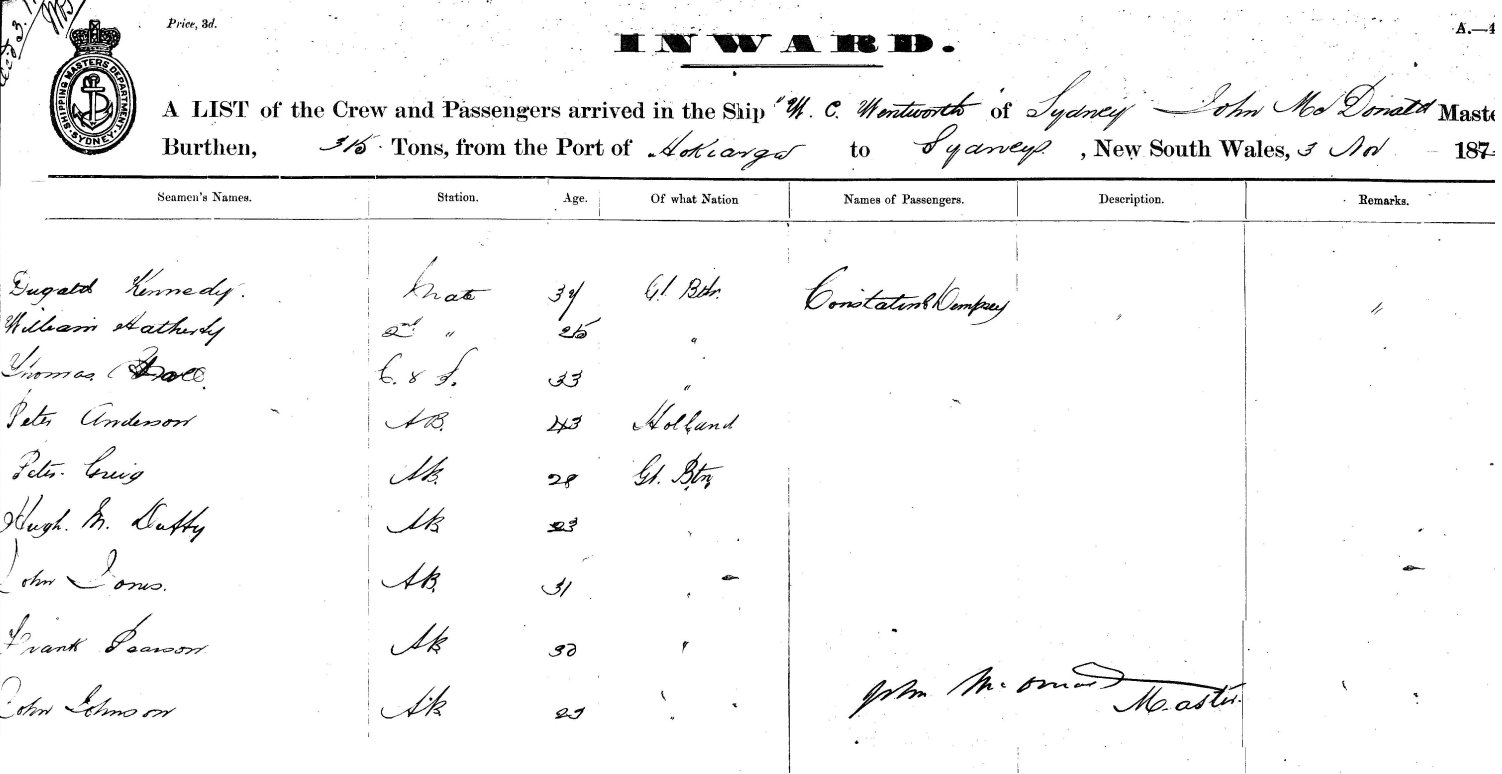 Price, 3d.
INWARD.
A.—4
SHIPPING MASTERS DEPARTMENT SYDNEY
A LIST of the Crew and Passengers arrived in the Ship "W. C. Wentworth" of Sydney John McDonald Maste
Burthen, 315 Tons, from the Port of Hokianga to Sydney , New South Wales, 3 Nov 187
Seamen's Names. Station. Age. Of what Nation Names of Passengers. Description. Remarks.
Dugald Kennedy. Mate 37 Gt. Btn. Constatine Dempsey " "
William Hatherly 2nd " 25 "
Thomas C. & S. 33 "
Peter Anderson AB. 43 Holland
Peter Greig AB. 28 Gt. Btn
Hugh. M. Duffy AB 23 "
John Jones. AB. 31 "
Frank Pearson AB 30 "
John Johnson AB 23 "
John McDonald
Master.